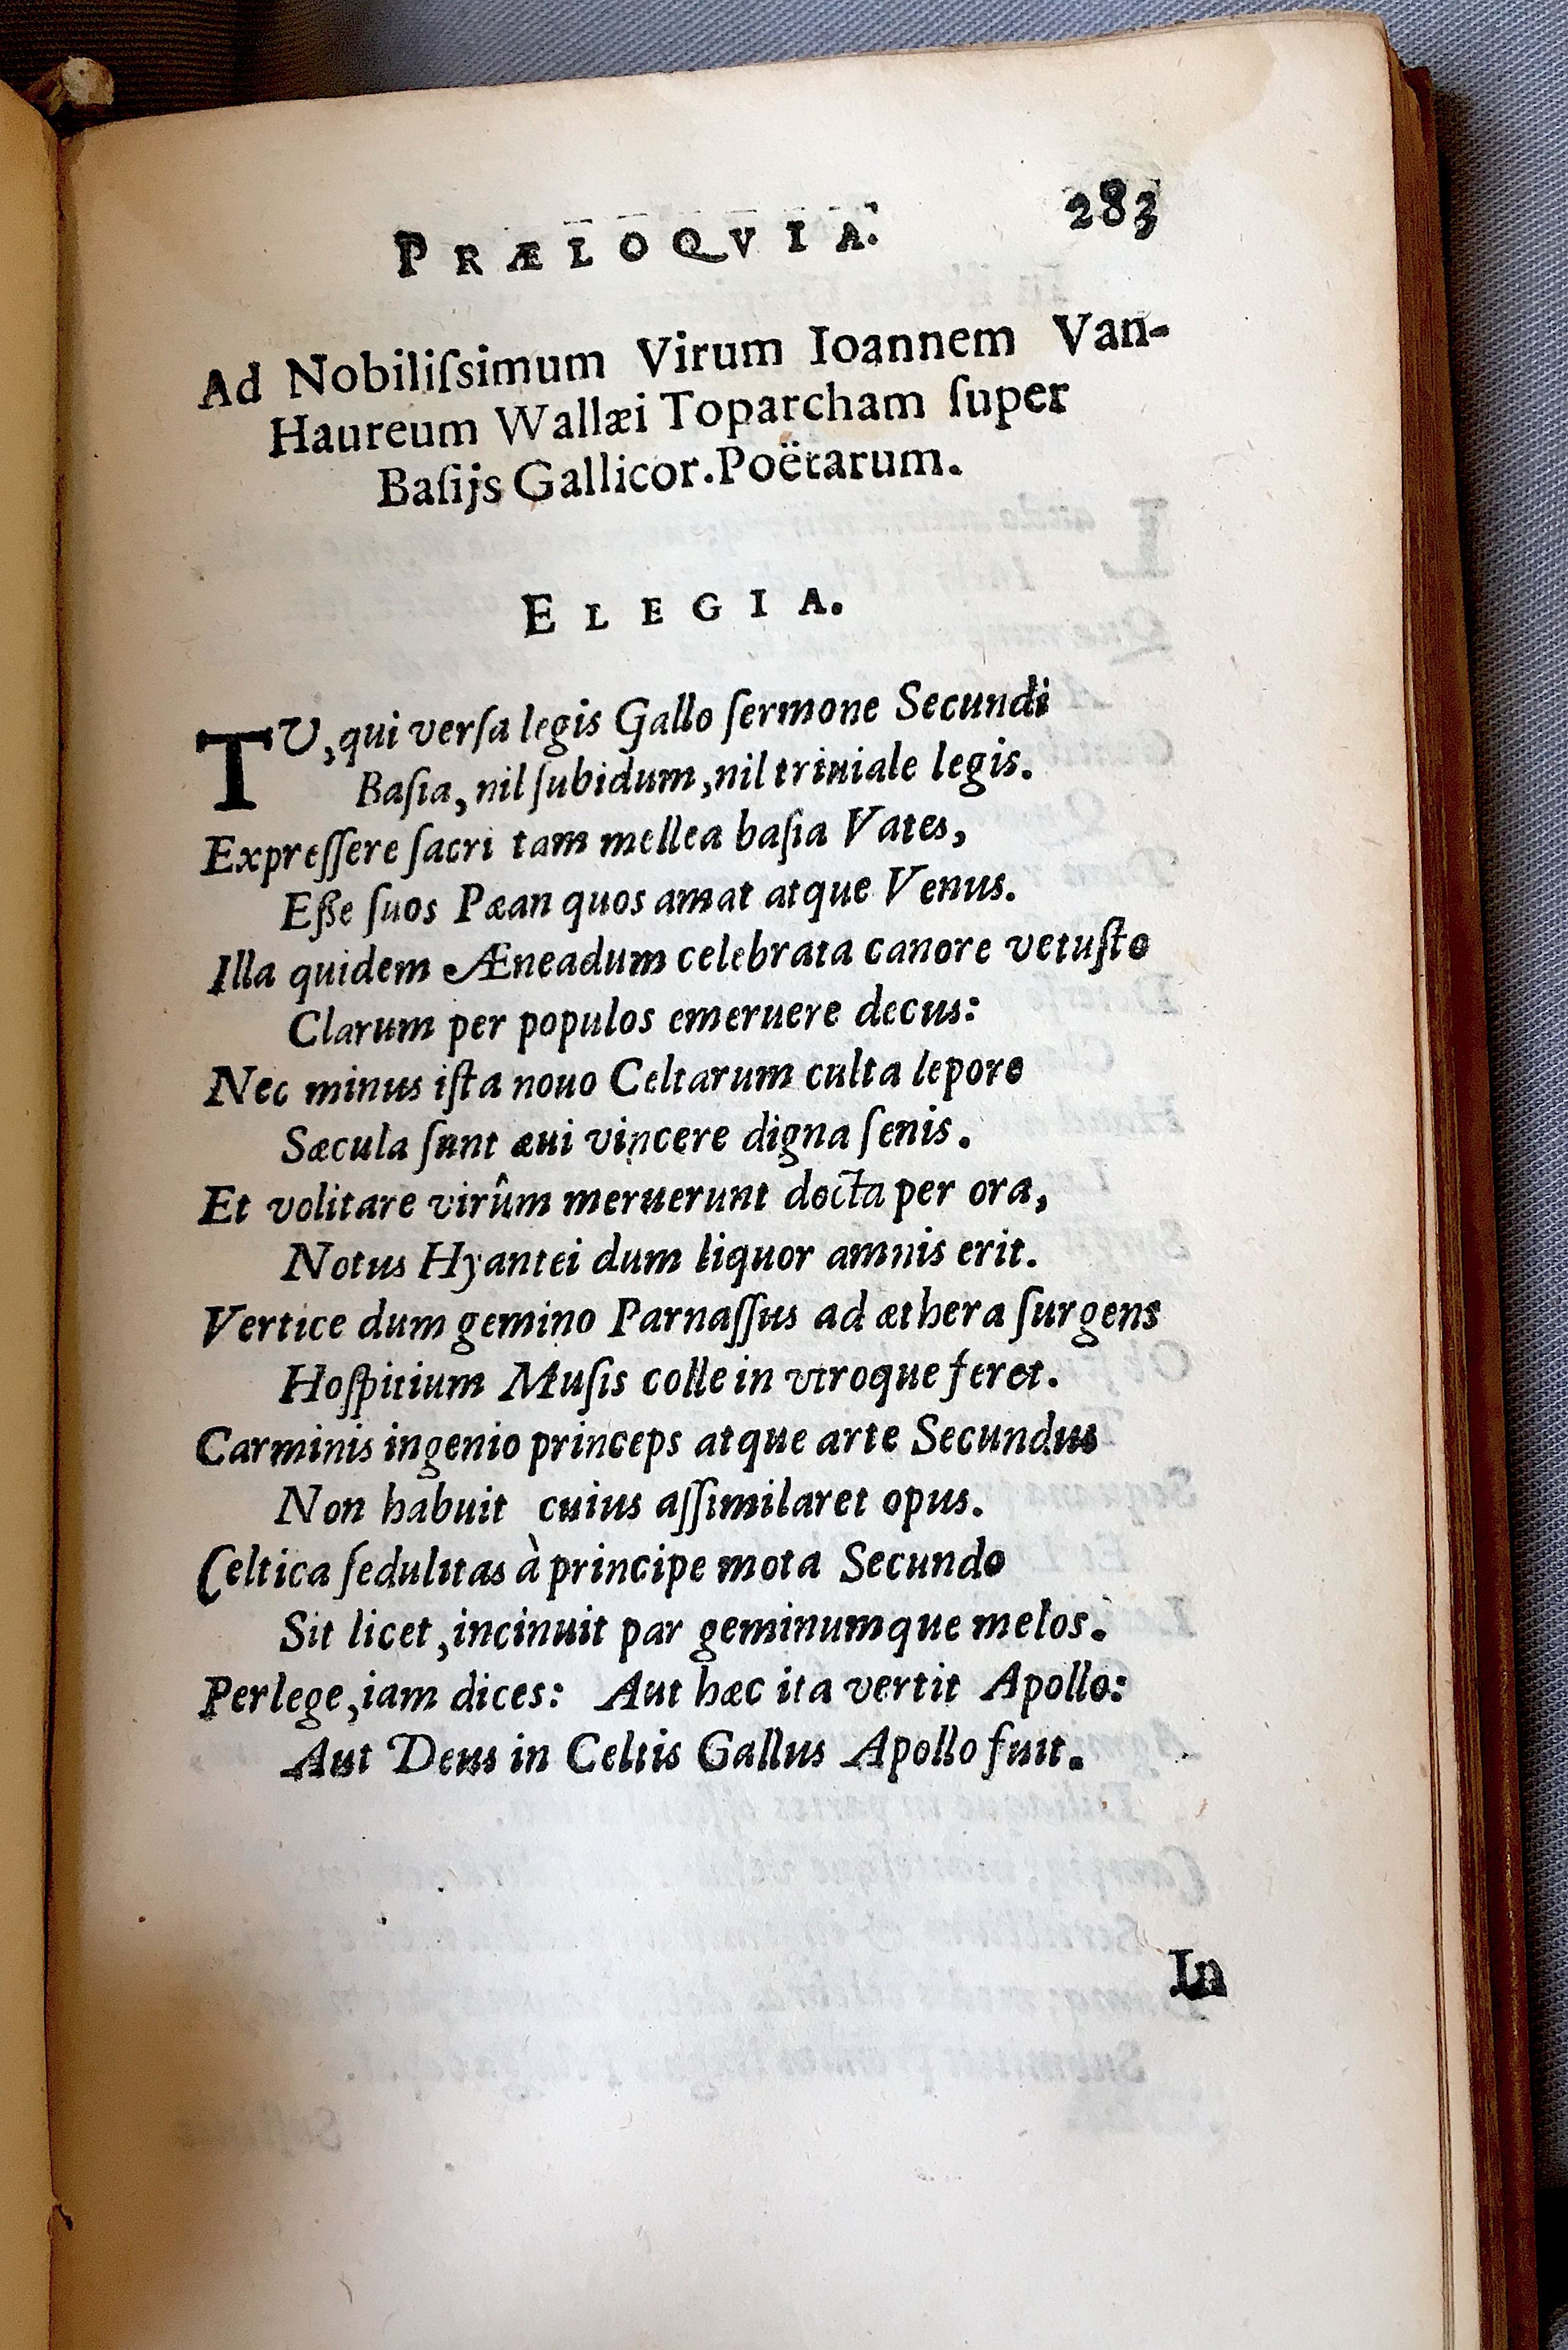 PRÆLOQVIA. 283
Ad Nobiliſsimum Virum Ioannem Van-
Haureum Wallæi Toparcham ſuper
Baſijs Gallicor. Poëtarum.
ELEGIA.
TU, qui verſa legis Gallo ſermone Secundi
Baſia, nil ſubidum, nil triuiale legis.
Expreſſere ſacri tam mellea baſia Vates,
Eſſe ſuos Pæan quos amat atque Venus.
Illa quidem Æneadum celebrata canore vetuſto
Clarum per populos emeruere decus:
Nec minus iſta nouo Celtarum culta lepore
Sæcula ſunt æui vincere digna ſenis.
Et volitare virûm meruerunt docta per ora,
Notus Hyantei dum liquor amnis erit.
Vertice dum gemino Parnaſſus ad æthera ſurgens
Hoſpitium Muſis colle in vtroque feret.
Carminis ingenio princeps atque arte Secundus
Non habuit cuius aſſimilaret opus.
Celtica ſedulitas à principe mota Secundo
Sit licet, incinuit par geminumque melos.
Perlege, iam dices: Aut hæc ita vertit Apollo:
Aut Deus in Celtis Gallus Apollo fuit.
In